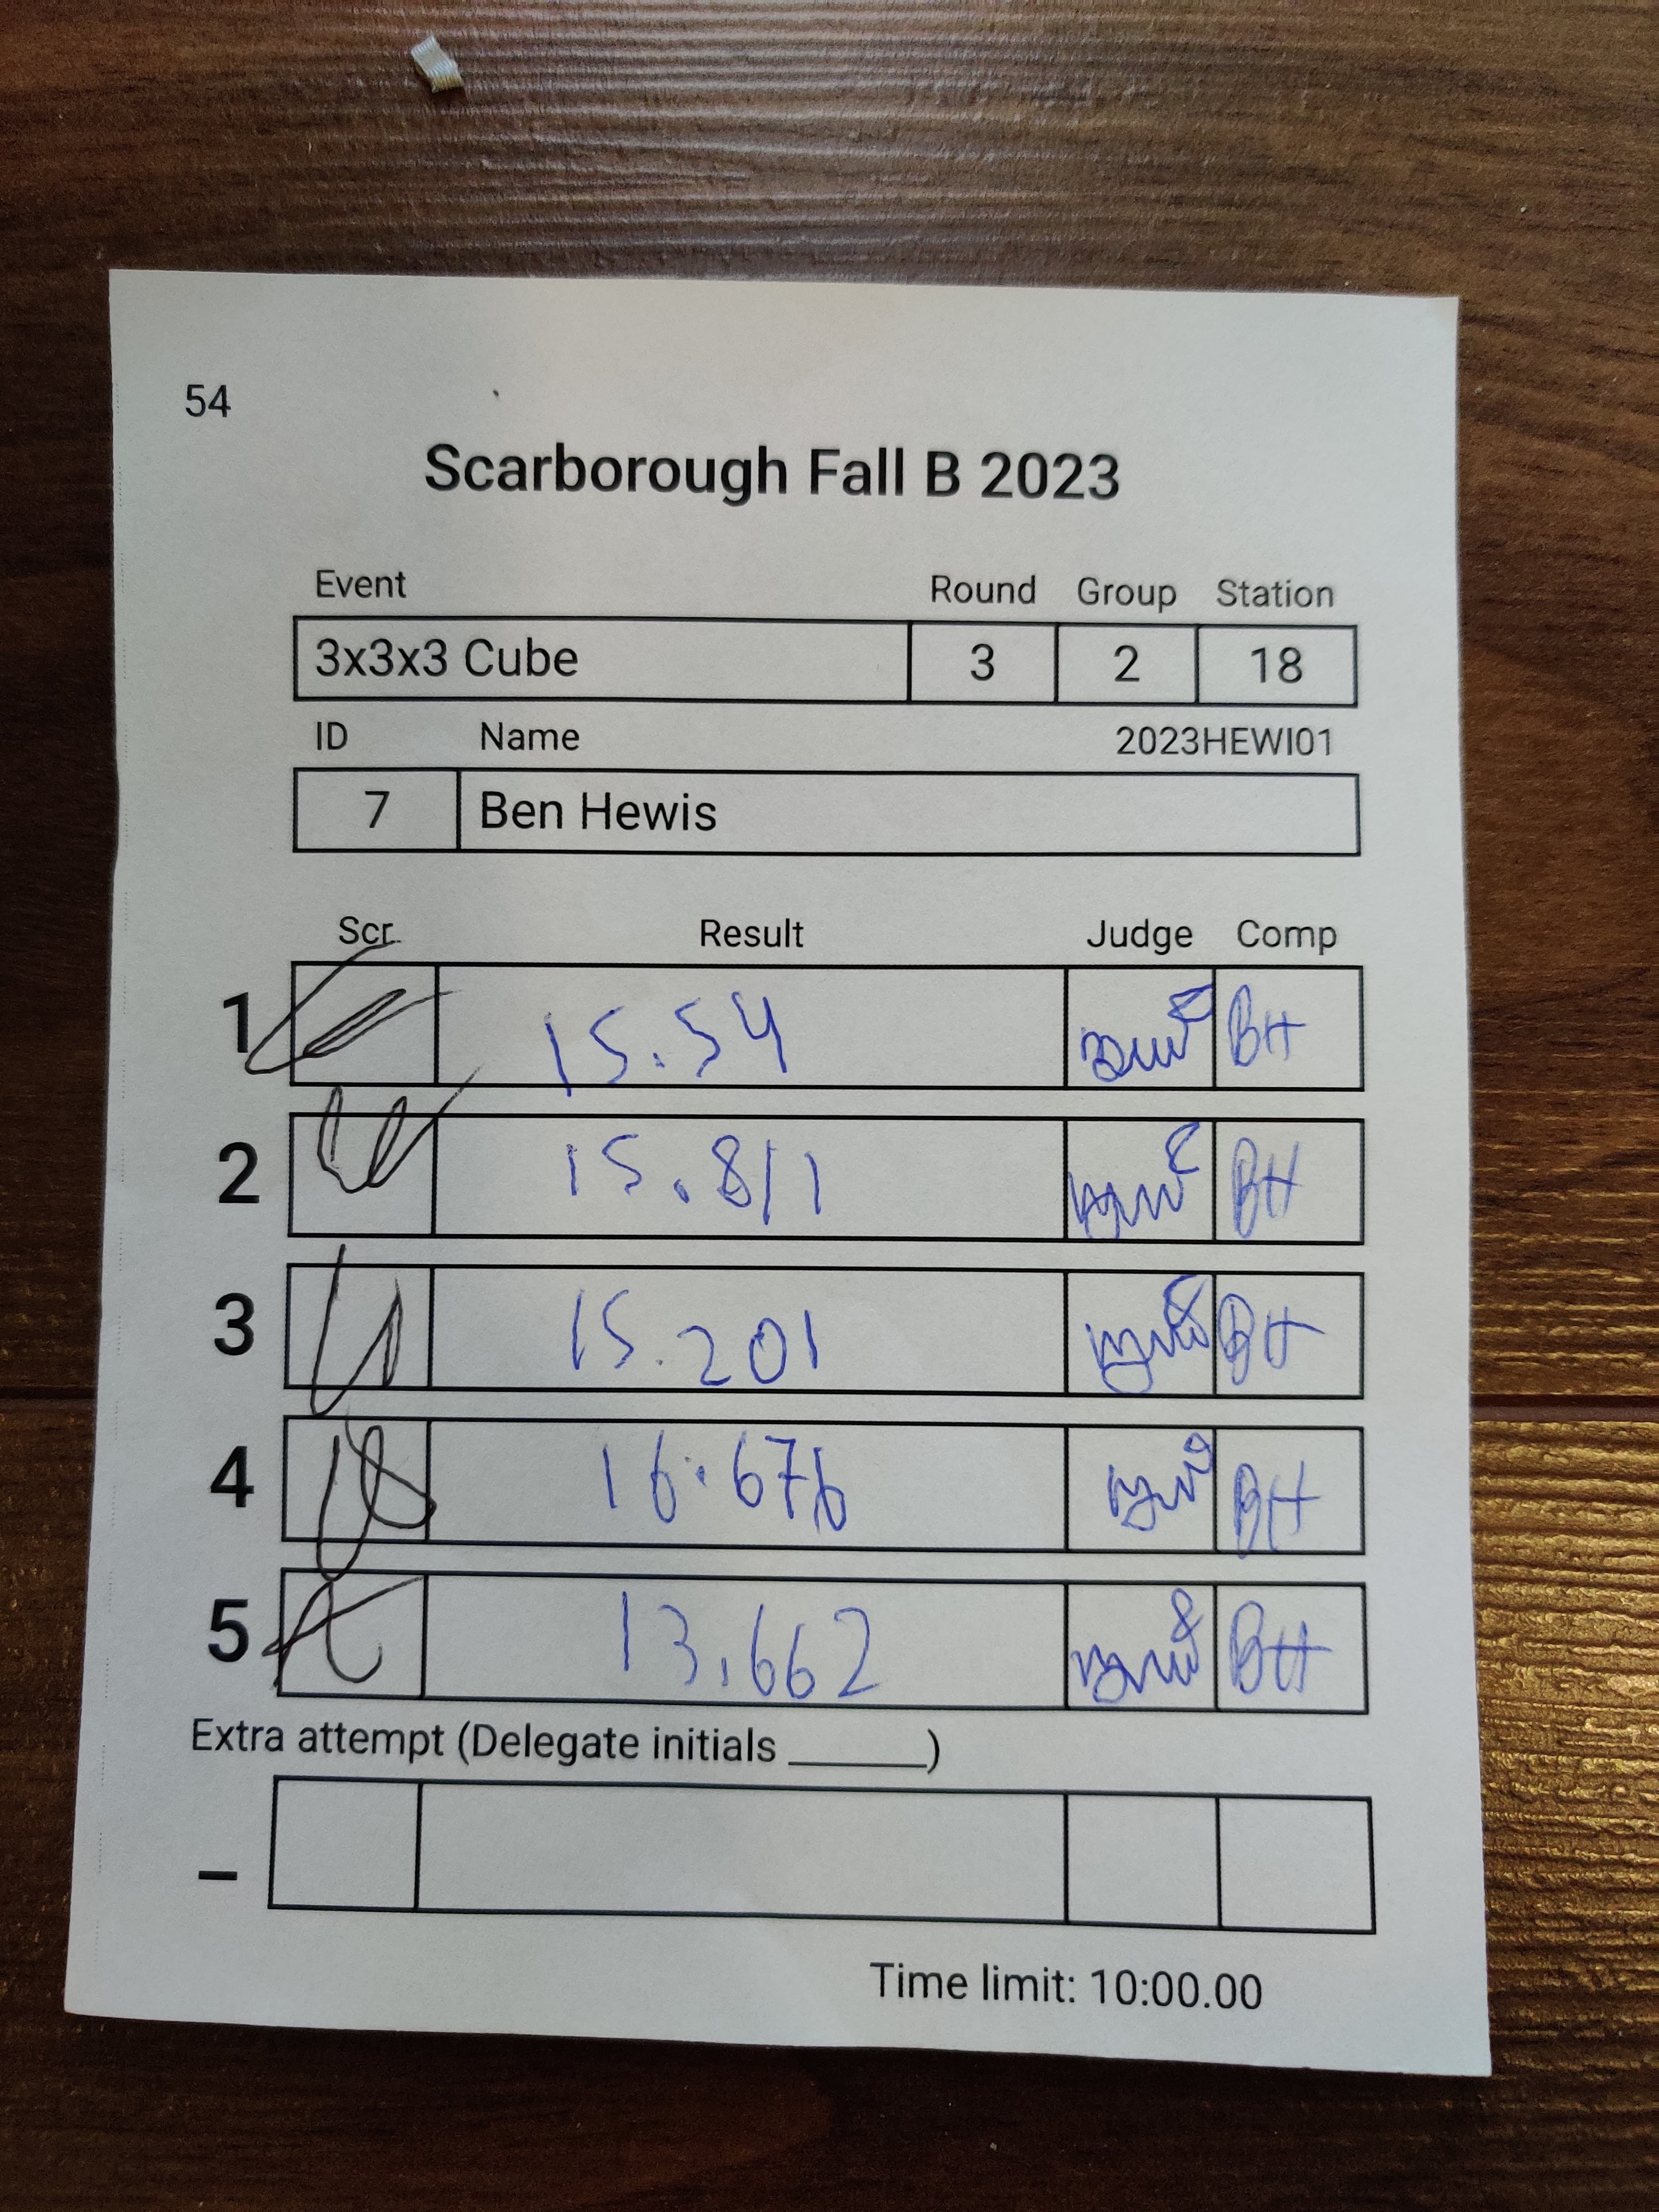 54
Scarborough Fall B 2023
Event Round Group Station
3x3x3 Cube 3 2 18
ID Name 2023HEWI01
7 Ben Hewis
Scr Result Judge Comp
1 15.54 BH
2 15.811 BH
3 15.201 BH
4 16.676 BH
5 13.662 BH
Extra attempt (Delegate initials ______)
–
Time limit: 10:00.00